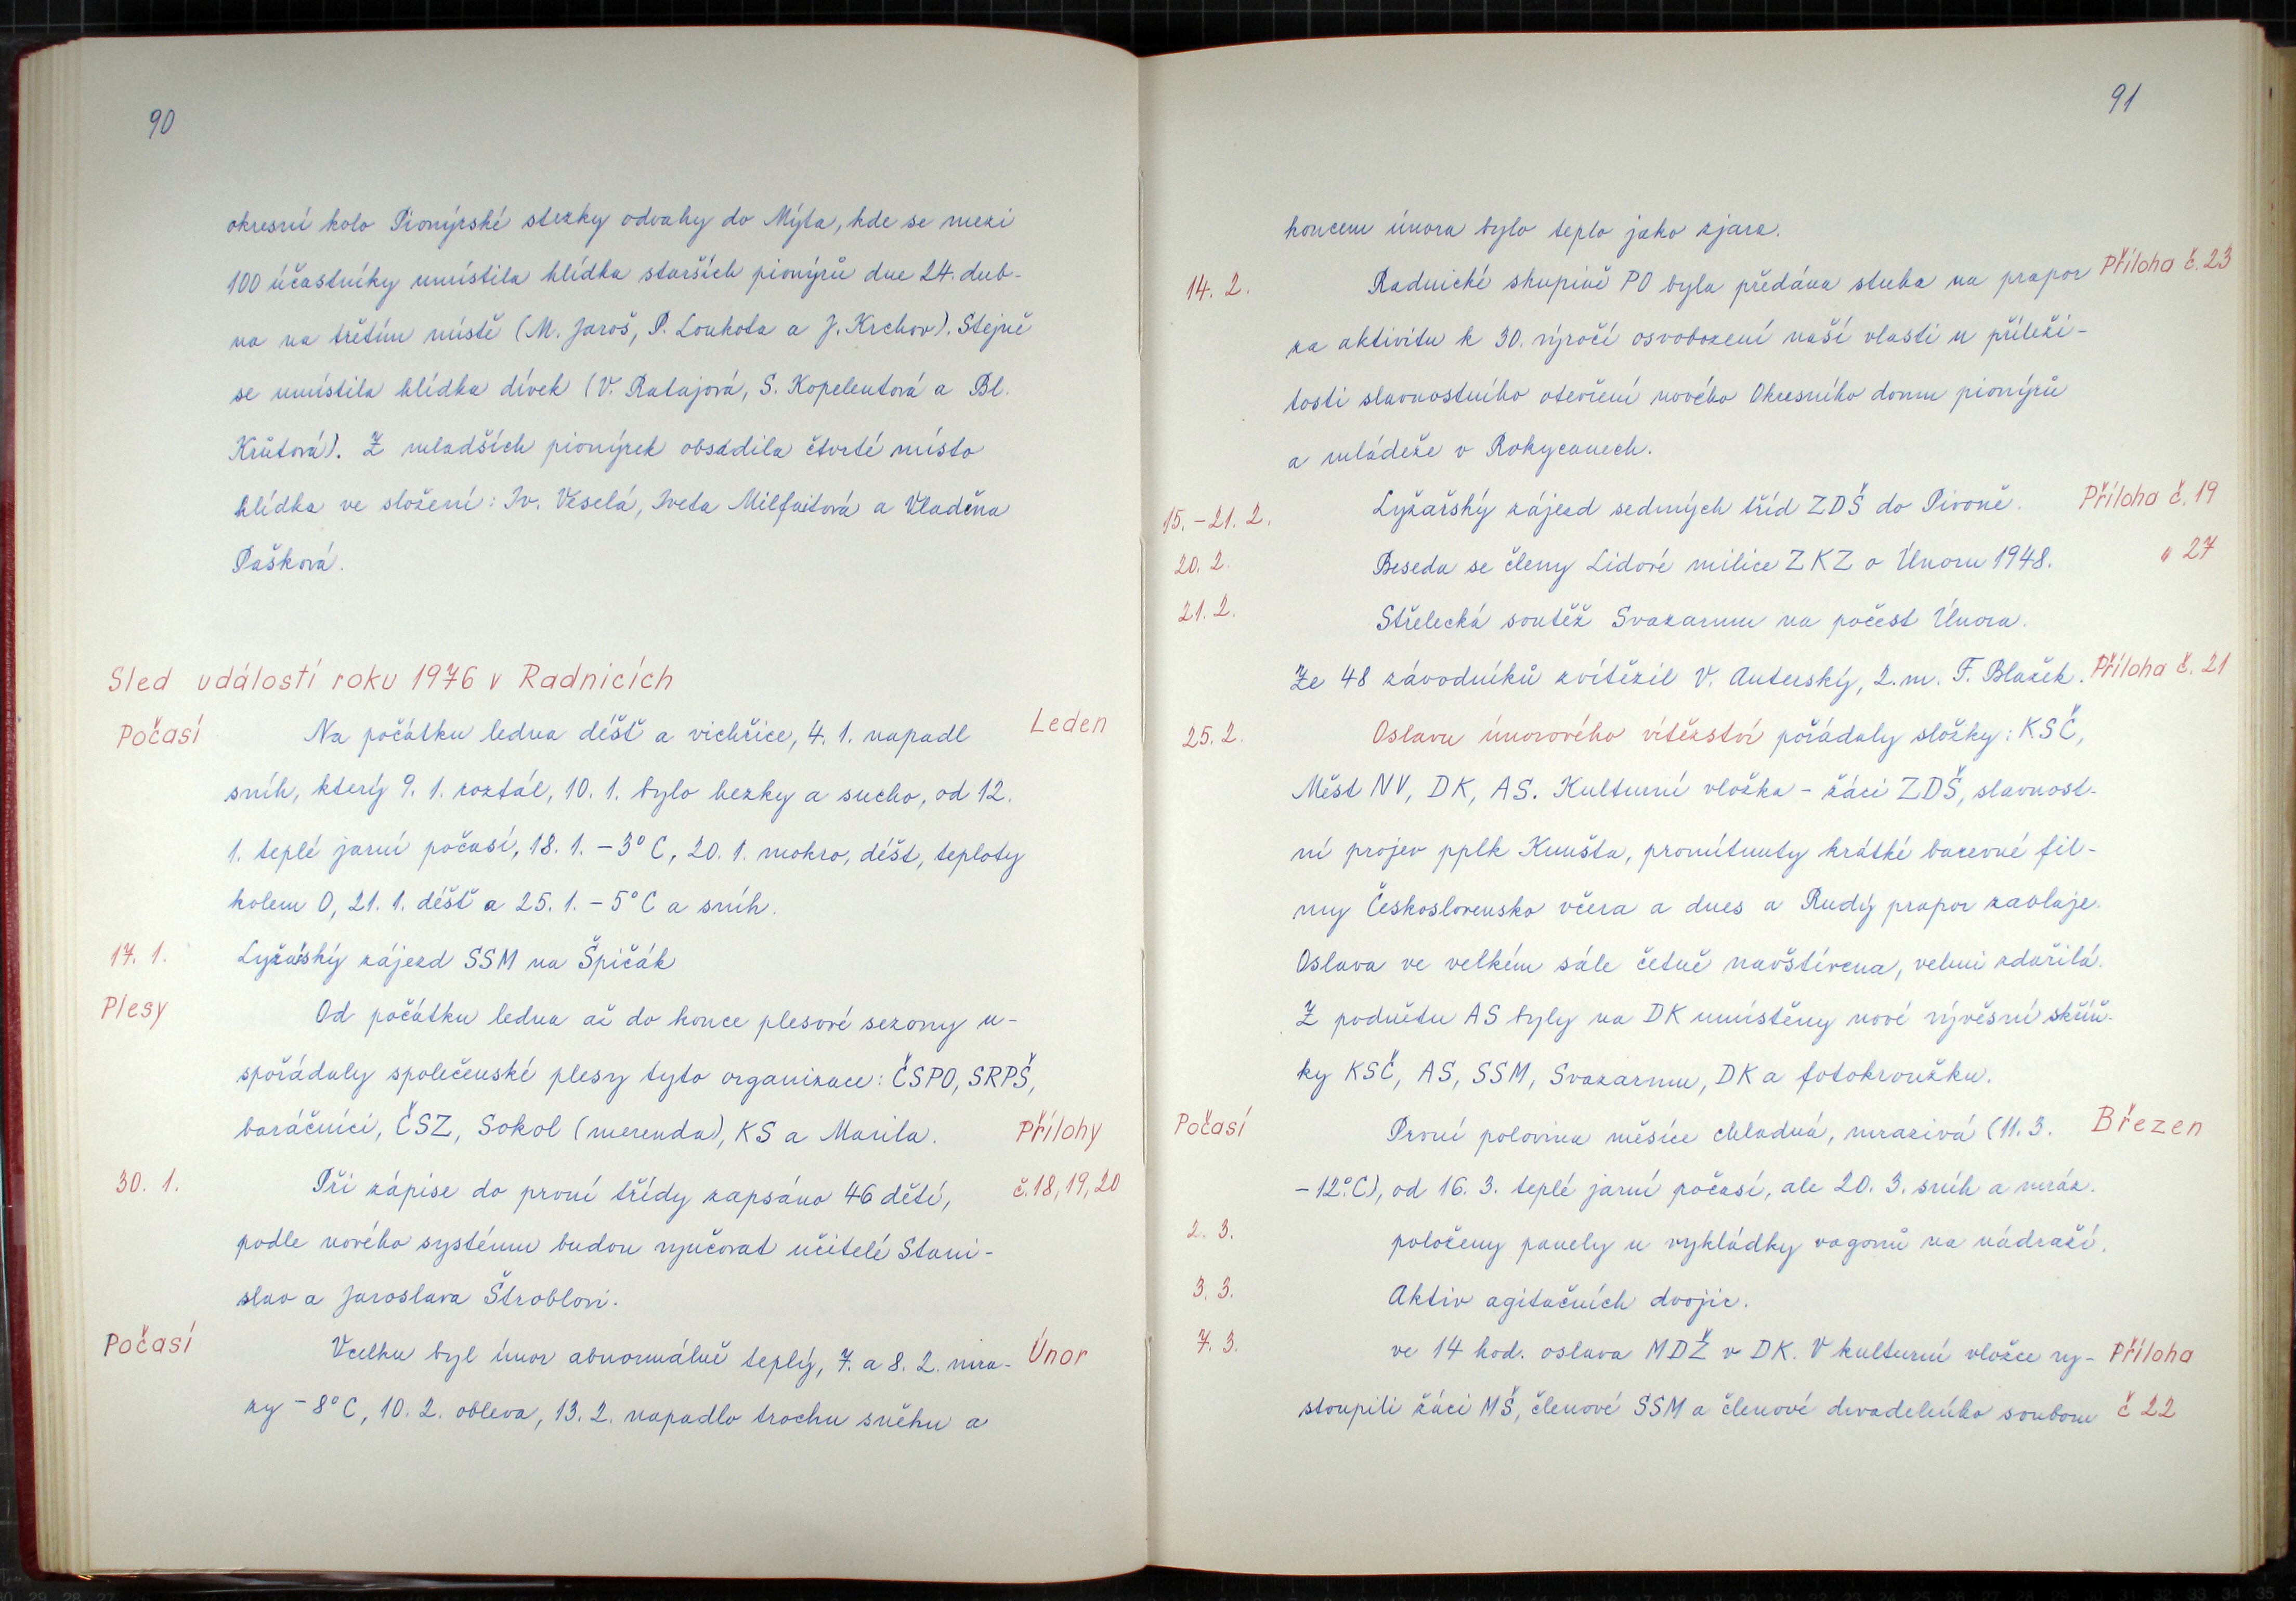 90
okresní kolo Pionýrské stezky odvahy do Mýta, kde se mezi
100 účastníky umístila hlídka starších pionýrů dne 24. dub-
na na třetím místě (M. Jaroš, P. Loukota a J. Krchov). Stejně
se umístila hlídka dívek (V. Ratajová, S. Kopelentová a Bl.
Krůtová). Z mladších pionýrek obsadila čtvrté místo
hlídka ve složení: Iv. Veselá, Iveta Milfaitová a Vladěna
Pašková.
Sled událostí roku 1976 v Radnicích
Počasí Na počátku ledna déšť a vichřice, 4. 1. napadl Leden
sníh, který 9. 1. roztál, 10. 1. bylo hezky a sucho, od 12.
1. teplé jarní počasí, 18. 1. -3°C, 20. 1. mokro, déšt, teploty
kolem 0, 21. 1. déšť a 25. 1. -5°C a sníh.
17. 1. Lyžařský zájezd SSM na Špičák
Plesy Od počátku ledna až do konce plesové sezony u-
spořádaly společenské plesy tyto organizace: ČSPO, SRPŠ,
baráčníci, ČSZ, Sokol (merenda), KS a Marila. Přílohy
30. 1. Při zápise do první třídy zapsáno 46 dětí, č. 18, 19, 20
podle nového systému budou vyučovat učitelé Stani-
slav a Jaroslava Štroblovi.
Počasí Vcelku byl únor abnormálně teplý, 7. a 8. 2. mra- Únor
zy -8°C, 10. 2. obleva, 13. 2. napadlo trochu sněhu a
91
koncem února bylo teplo jako zjara.
14. 2. Radnické skupině PO byla předána stuha na prapor Příloha č. 23
za aktivitu k 30. výročí osvobození naší vlasti u příleži-
tosti slavnostního otevření nového Okresního domu pionýrů
a mládeže v Rokycanech.
15. - 21. 2. Lyžařský zájezd sedmých tříd ZDŠ do Pivoně. Příloha č. 19
20. 2. Beseda se členy Lidové milice ZKZ o Únoru 1948. " 27
21. 2. Střelecká soutěž Svazarmu na počest Února.
Ze 48 závodníků zvítězil V. Auterský, 2. m. F. Blažek. Příloha č. 21
25. 2. Oslavu únorového vítězství pořádaly složky: KSČ,
Měst NV, DK, AS. Kulturní vložka - žáci ZDŠ, slavnost-
ní projev pplk Knušta, promítnuty krátké barevné fil-
my Československo včera a dnes a Rudý prapor zavlaje.
Oslava ve velkém sále četně navštívena, velmi zdařilá.
Z podnětu AS byly na DK umístěny nové vývěsní skříň-
ky KSČ, AS, SSM, Svazarmu, DK a fotokroužku.
Počasí První polovina měsíce chladná, mrazivá (11. 3. Březen
-12°C), od 16. 3. teplé jarní počasí, ale 20. 3. sníh a mráz.
2. 3. položeny panely u vykládky vagonů na nádraží.
3. 3. Aktiv agitačních dvojic.
7. 3. ve 14 hod. oslava MDŽ v DK. V kulturní vložce vy- Příloha
stoupili žáci MŠ, členové SSM a členové divadelního souboru č 22